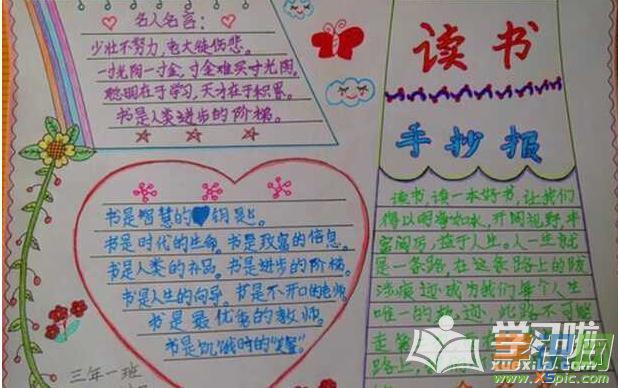 名人名言：
少壮不努力，老大徒伤悲。
一寸光阴一寸金，寸金难买寸光阴。
聪明在于学习，天才在于积累。
书是人类进步的阶梯。
读书
手抄报
书是智慧的钥匙。
书是时代的生命。书是致富的信息。
书是人类的补品。书是进步的阶梯。
书是人生的向导。书是不开口的老师。
书是最优秀的教师。
书是饥饿时的
读书，读一本好书，让我们
得以明净如水，开阔视野，丰
富阅历，益于人生。人一生就
是一条路，在这条路上的跋
涉痕迹成为我们每个人生
唯一的轨迹，此路不可能
走
路上，
三年一班
学习啦
www.
X5pic.com